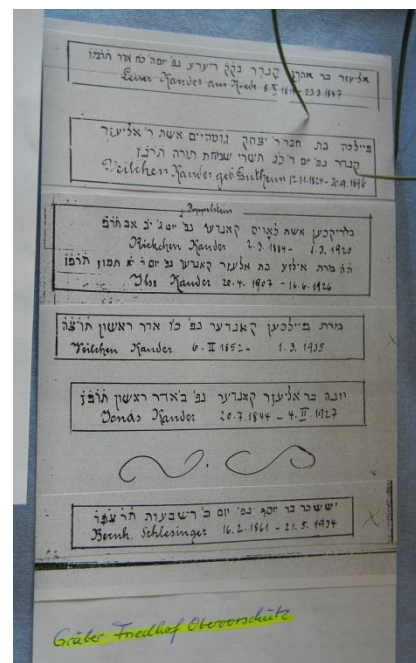 אליעזר בר אהרן קנדר
Leiser Kander aus
פיילכה בת חבר ר' יצחק גוטהיים אשת ר' אליעזר
קנדר נפ' יום ר' כג תשרי שמחת תורה
Veilchen Kander geb. Gutheim 12.11.1824-
Doppelstein
אשת קאנדער נפ' יום ג' יב אב
Rickchen Kander 2.3.1884- 1.3.1920
מרת אילזע בת אלעזר קאנדער נפ' יום ר' א תמוז
Ilse Kander 20.4.1907 - 16.6.1926
מרת פיילכען קאנדער נפ' כ'ו אדר ראשון תרצה
Veilchen Kander 6.II 1852- 1.3.1935
יונה בר אליעזר קאנדער נפ' ב' אדר ראשון
Jonas Kander 20.7.1844 - 4.II.1927
יששכר בר יוסף נפ' יום
Bernh. Schlesinger 16.2.1861 - 21.5.1934
Gräber Friedhof Obervorschütz